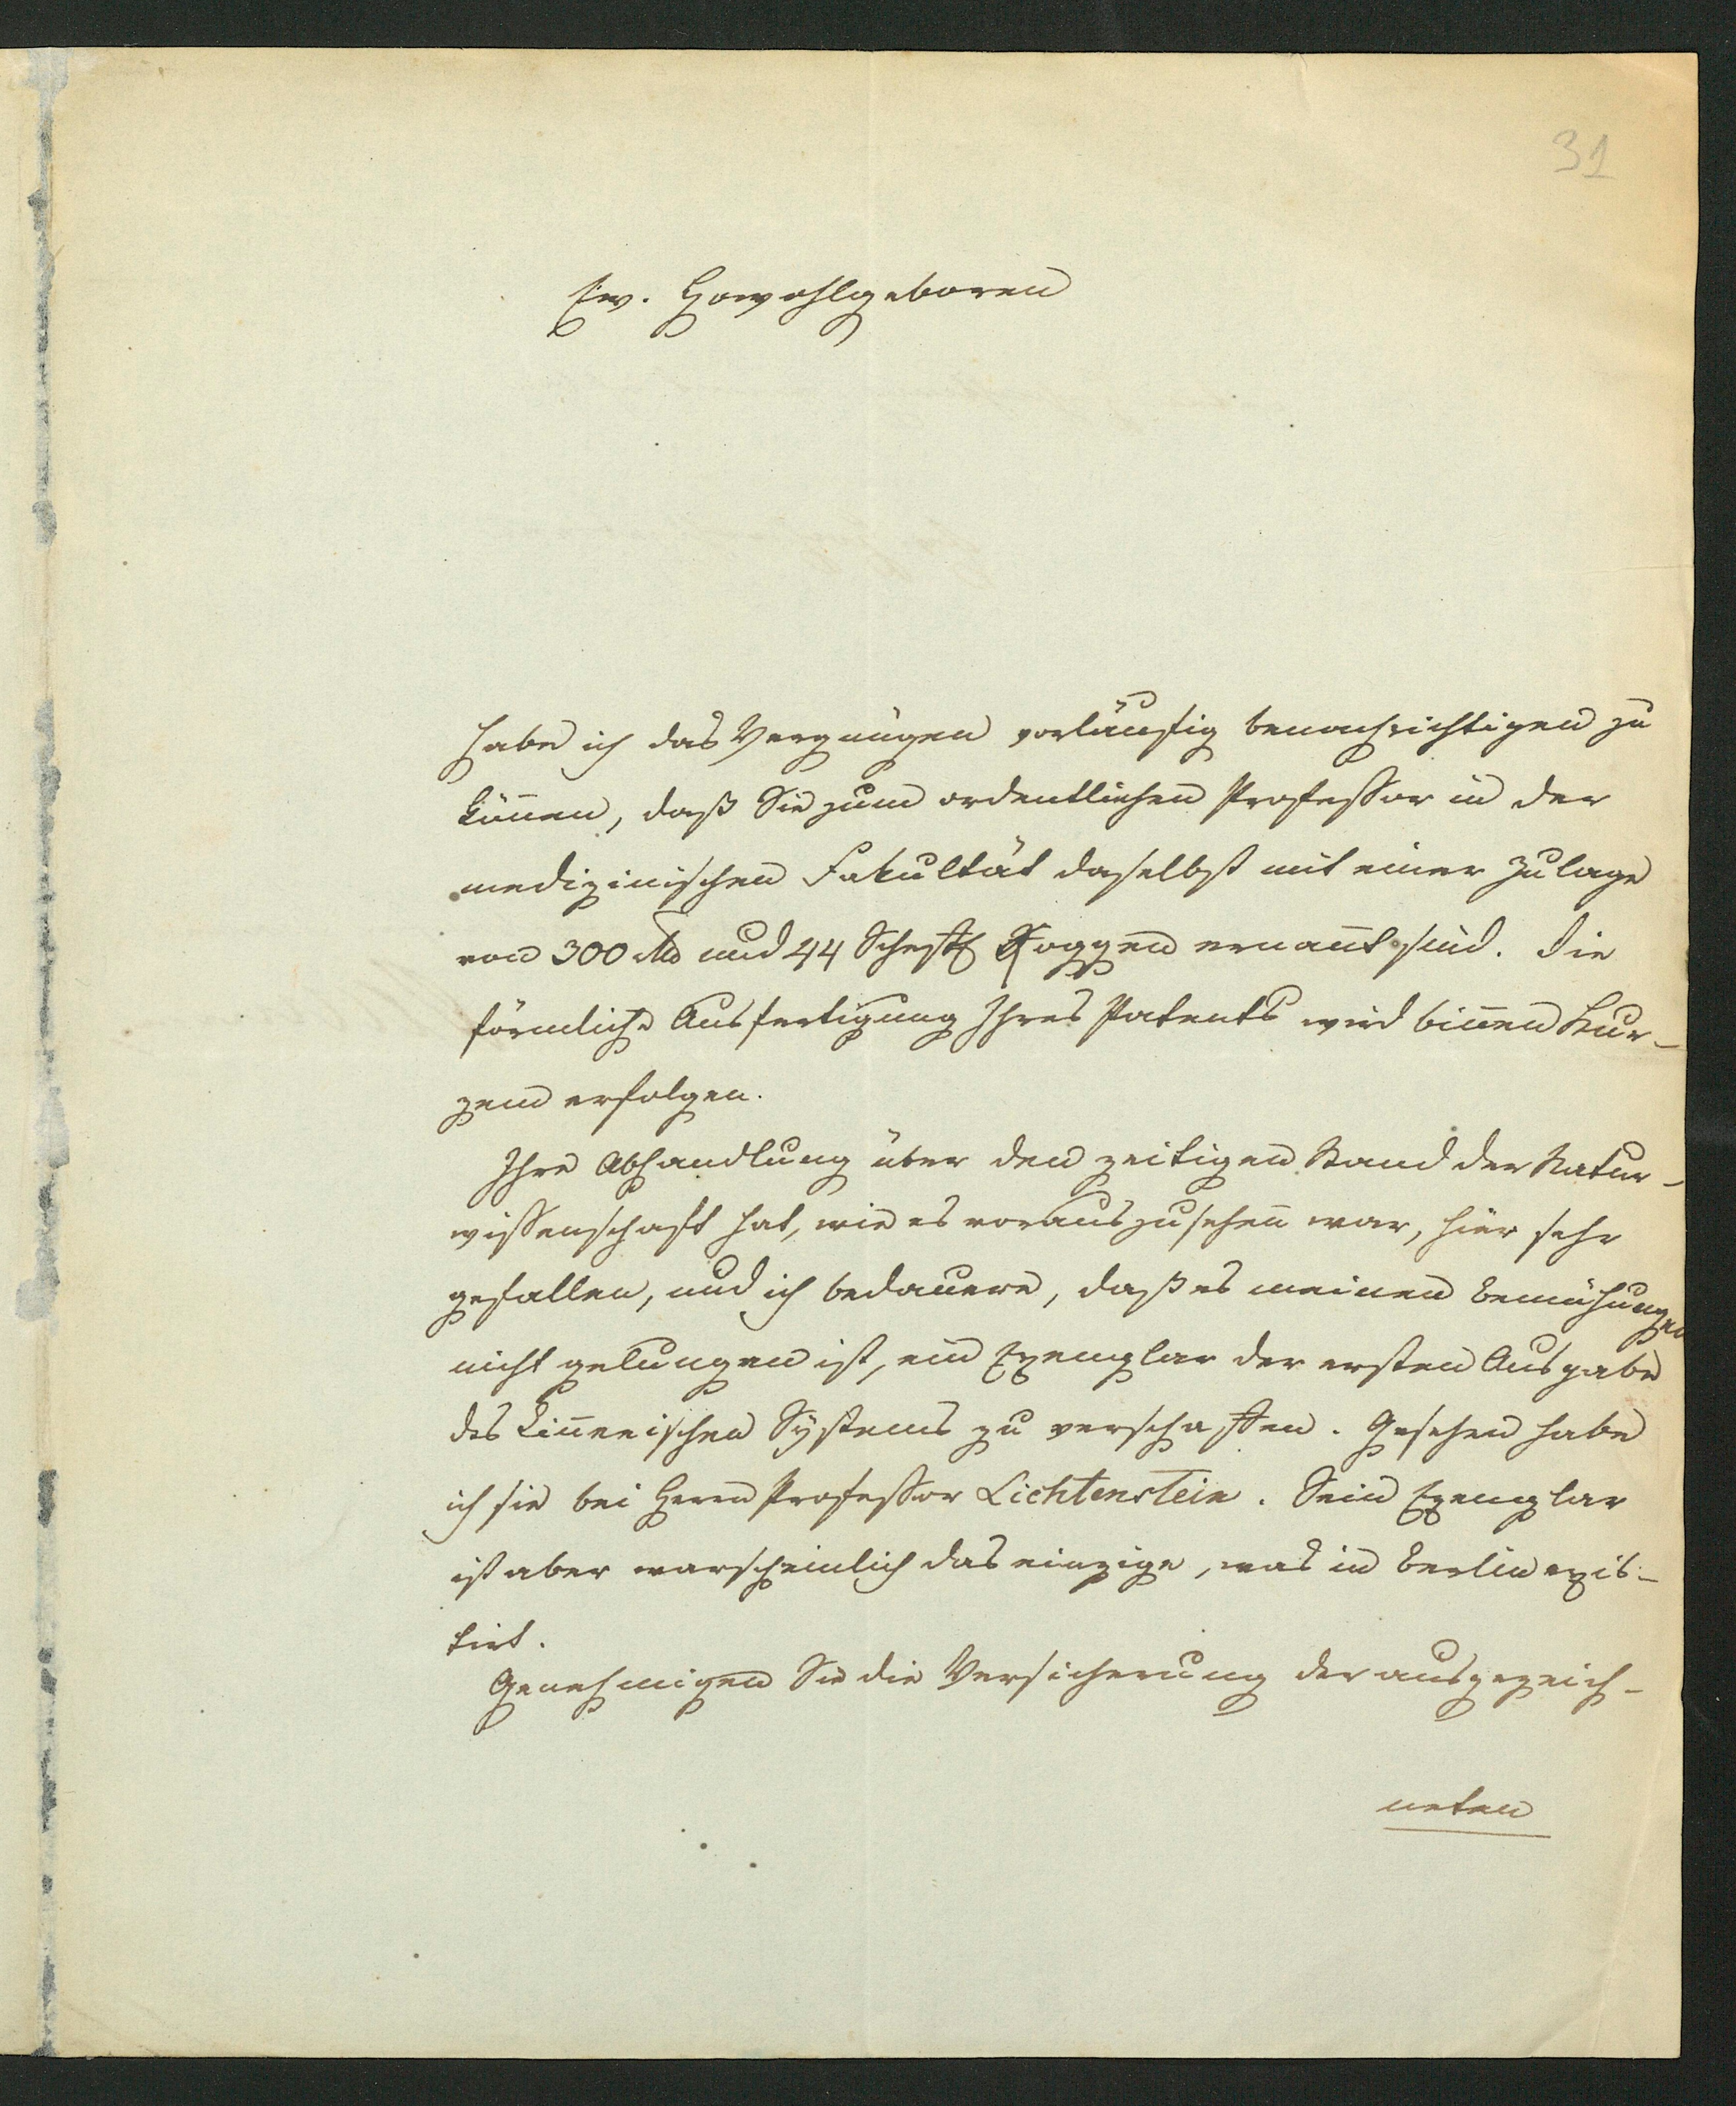 31
Ew. Howohlgeboren
habe ich das Vergnügen vorläufig benachrichtigen zu
können, daß Sie zum ordentlichen Professor in der
medizinischen Fakultät daselbst mit einer Zulage
von 300 und 44 Scheffl Roggen ernannt sind. Die
förmliche Ausfertigung Ihres Patents wird binnen Kur-
zem erfolgen.
Ihre Abhandlung über den zeitigen Stand der Natur-
wissenschaft hat, wie es vorauszusehen war, hier sehr
gefallen, und ich bedauere, daß es meinen Bemühungen
nicht gelungen ist, ein Exemplar der ersten Ausgabe
des Linneischen Systems zu verschaffen. Gesehen habe
ich sie bei Herrn Professor Lichtenstein. Sein Exemplar
ist aber warscheinlich das einzige, was in Berlin exis-
tirt.
Genehmigen Sie die Versicherung der ausgezeich-
neten